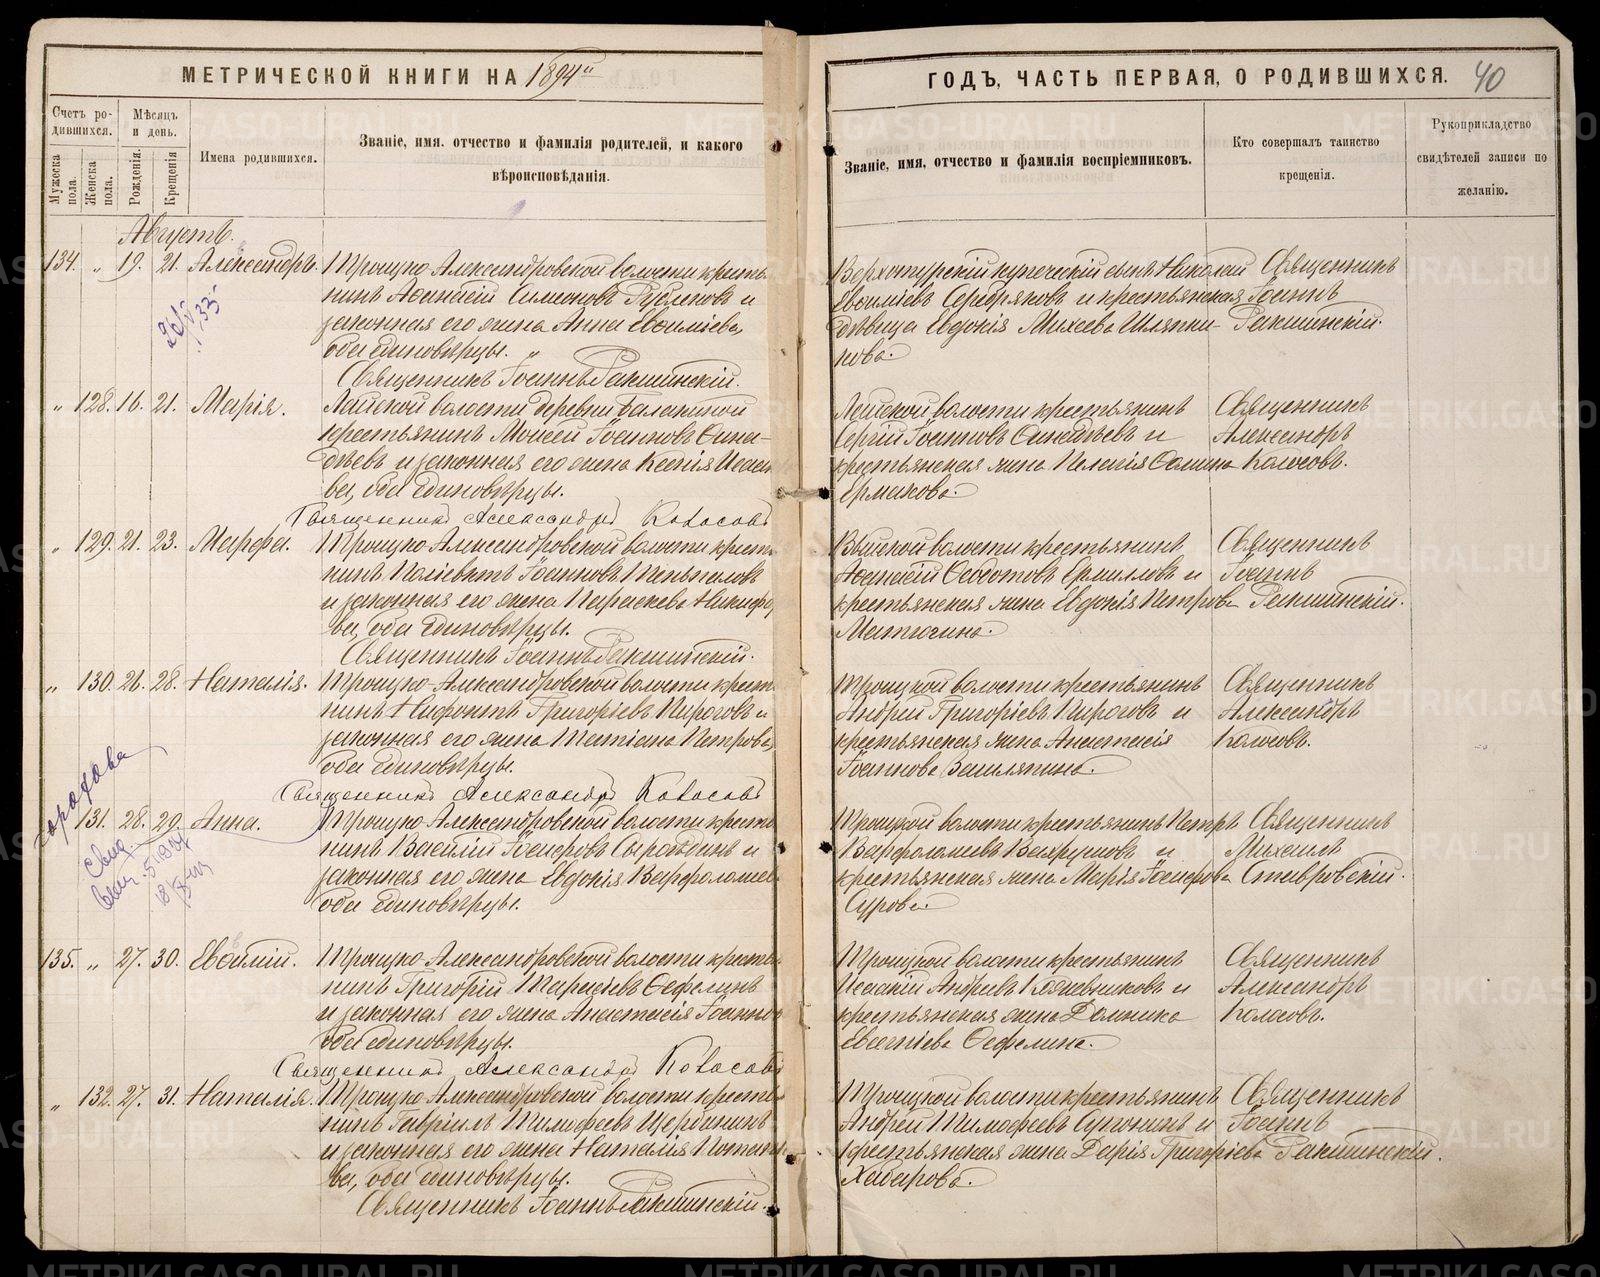 МЕТРИЧЕСКОЙ КНИГИ НА 1894й
ГОДЪ, ЧАСТЬ ПЕРВАЯ, О РОДИВШИХСЯ. 40
Счетъ ро-
дившихся.
Мужеска пола.
Женска пола.
Мѣсяцъ
и день.
Рожденія.
Крещенія
Имена родившихся.
Званіе, имя, отчество и фамилія родителей, и какого
вѣроисповѣданія.
Званіе, имя, отчество и фамилія воспріемниковъ.
Кто совершалъ таинство
крещенія.
Рукоприкладство
свидѣтелей записи по
желанію.
Августъ.
134. " 19. 21. Александръ. Троицко Александровской волости крестья
нинъ Аѳанасій Симеоновъ и
законная его жена Анна Евѳиміева,
оба единовѣрцы.
Священникъ Іоаннъ Ракшинскій.
Верхотурскій купеческій сынъ Николай
Евѳиміевъ Серебряковъ и крестьянская
дѣвица Евдокія Михеева Шляпни-
кова.
Священникъ
Іоаннъ
Ракшинскій.
" 128. 16. 21. Марія. Лайской волости деревни Балакиной
крестьянинъ Моисей Іоанновъ Сина-
дѣевъ и законная его жена Ксенія Исаак
ва, оба единовѣрцы.
Священникъ Александръ Колосовъ
Лайской волости крестьянинъ
Сергій Іоанновъ и
крестьянская жена Пелагія Ѳомина
Ермакова.
Священникъ
Александръ
Колосовъ.
" 129. 21. 23. Марѳа. Троицко Александровской волости крестья
нинъ Поліевктъ Іоанновъ
и законная его жена Параскева Никифо
ва, оба единовѣрцы.
Священникъ Іоаннъ Ракшинскій.
Выйской волости крестьянинъ
Аѳанасій Ѳедотовъ Ермиловъ и
крестьянская жена Евдокія Петрова
Матюгина.
Священникъ
Іоаннъ
Ракшинскій.
" 130. 26. 28. Наталія. Троицко-Александровской волости крестья
нинъ Нифонтъ Григоріевъ Пироговъ и
законная его жена Татіана Петрова,
оба единовѣрцы.
Священникъ Александръ Колосовъ
Троицкой волости крестьянинъ
Андрей Григоріевъ Пироговъ и
крестьянская жена Анастасія
Іоаннова
Священникъ
Александръ
Колосовъ.
" 131. 28. 29. Анна. Троицко Александровской волости крестья
нинъ Василій Іосифовъ и
законная его жена Евдокія Варфоломее
оба единовѣрцы.
Троицкой волости крестьянинъ Петръ
Варфоломеевъ Вахрушовъ и
крестьянская жена Марія Іосифова
Сурова.
Священникъ
Михаилъ
Ставровскій.
135. " 27. 30. Евѳимій. Троицко Александровской волости крестья
нинъ Григорій Тарасіевъ Ѳефелинъ
и законная его жена Анастасія Іоанно
оба единовѣрцы.
Священникъ Александръ Колосовъ
Троицкой волости крестьянинъ
Исаакій Андреевъ и
крестьянская жена Домника
Евгеніева Ѳефелина.
Священникъ
Александръ
Колосовъ.
" 132. 27. 31. Наталія. Троицко Александровской волости крестья
нинъ Гавріилъ Тимоѳеевъ Щербининъ
и законная его жена Наталія Потапо
ва, оба единовѣрцы.
Священникъ Іоаннъ Ракшинскій.
Троицкой волости крестьянинъ
Андрей Тимоѳеевъ и
крестьянская жена Дарія Григоріева
Хабарова.
Священникъ
Іоаннъ
Ракшинскій.
METRIKI.GASO-URAL.RU